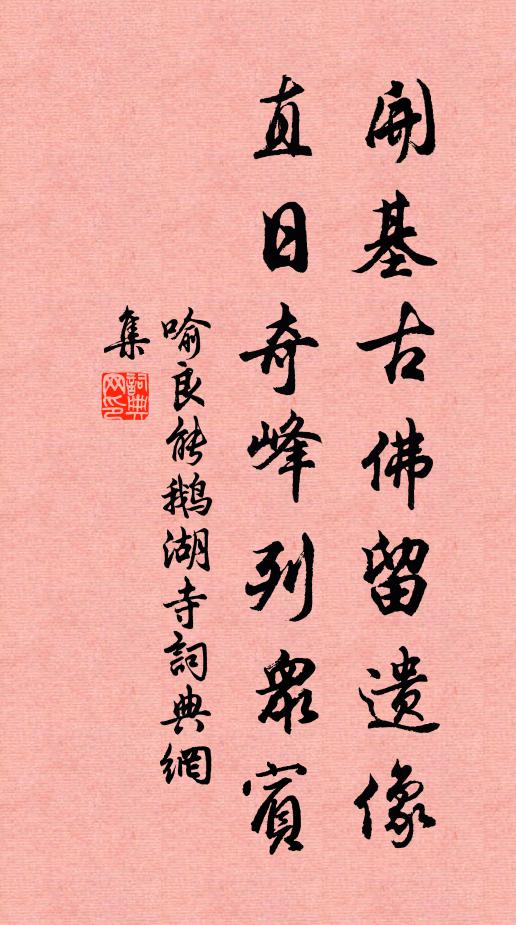 開基古佛留遺像
直日奇峰列衆賓
喻良能鵝湖寺詞典網
集
詞典
网印